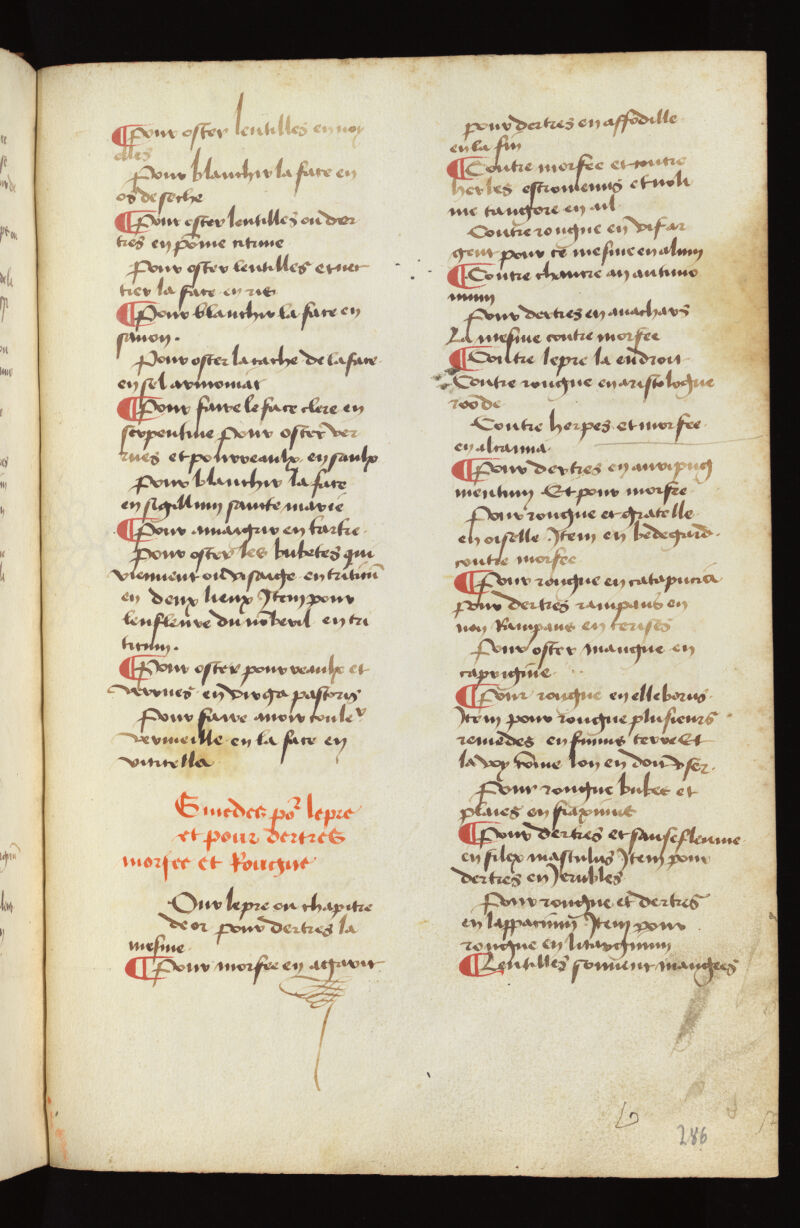 ¶ Pour oster lentilles en noy
elles
Pour blanchir la face en
os de seche
¶ Pour oster lentilles ou der
tres en põme citrine
Pour oster lentilles et net
tier la face en ris
¶ Pour blanchir la face en
savon.
Pour oster la tache de la face
en sel armoniac
¶ Pour faire le face clere en
serpentine Pour oster ver
rues et pourreaulx en saulx
Pour blanchir la face
en sigillum sainte marie
¶ Pour amaigrir en tartre
Pour oster les bubetes qui
viennent ou visaige en triticũ
en deux lieux Item pour
lenfleure du nõberil en tri
ticum.
¶ Pour oster pourreaulx et
verrues en virga pastoris
Pour faire avoir couler
vermeille en la face en
viticella
Remedes po^r lepre
et pour dertres
morfee et Rongne
Our lepre ou chapitre
de or pour dertres la
mesme.
¶ Pour morfee en agaric
pour dertres en affodille
en la fin
¶ Contre morfee et contre
herbes estiomenus et noli
me tangere en ail
Contre rongne en vif ar
gent pour ce mesme en alun
¶ Contre chancre an antimo
nium
Pour dertres en anachars
La mesme contre morfee
¶ Contre lepre la endroit
Contre rongne en aristologue
rõde
Contre herpes et morfee
en alcanna
¶ Pour dertres en auripig
mentum Et pour morfee
Pour rongne et gratelle
en oiselle Item en bedegard
contre morfee
¶ Pour rongne en catapucia
pour dertres rampans en
non Rampans en cerises
Pour oster mangue en
caprigine
¶ Pour rongne en elleborus
Item pour rongne plusieurs
remedes en fumus terre Et
la voy cõme lon en doit user.
Pour rongne bubes et
plaies en fraxinus
¶ Pour dertres et sausefleume
en filex masculus Item pour
dertres en Jerubles
Pour rongne et dertres
en lappacium Item pour
rongne en litargirum
¶ Lentilles souvent mangees
286